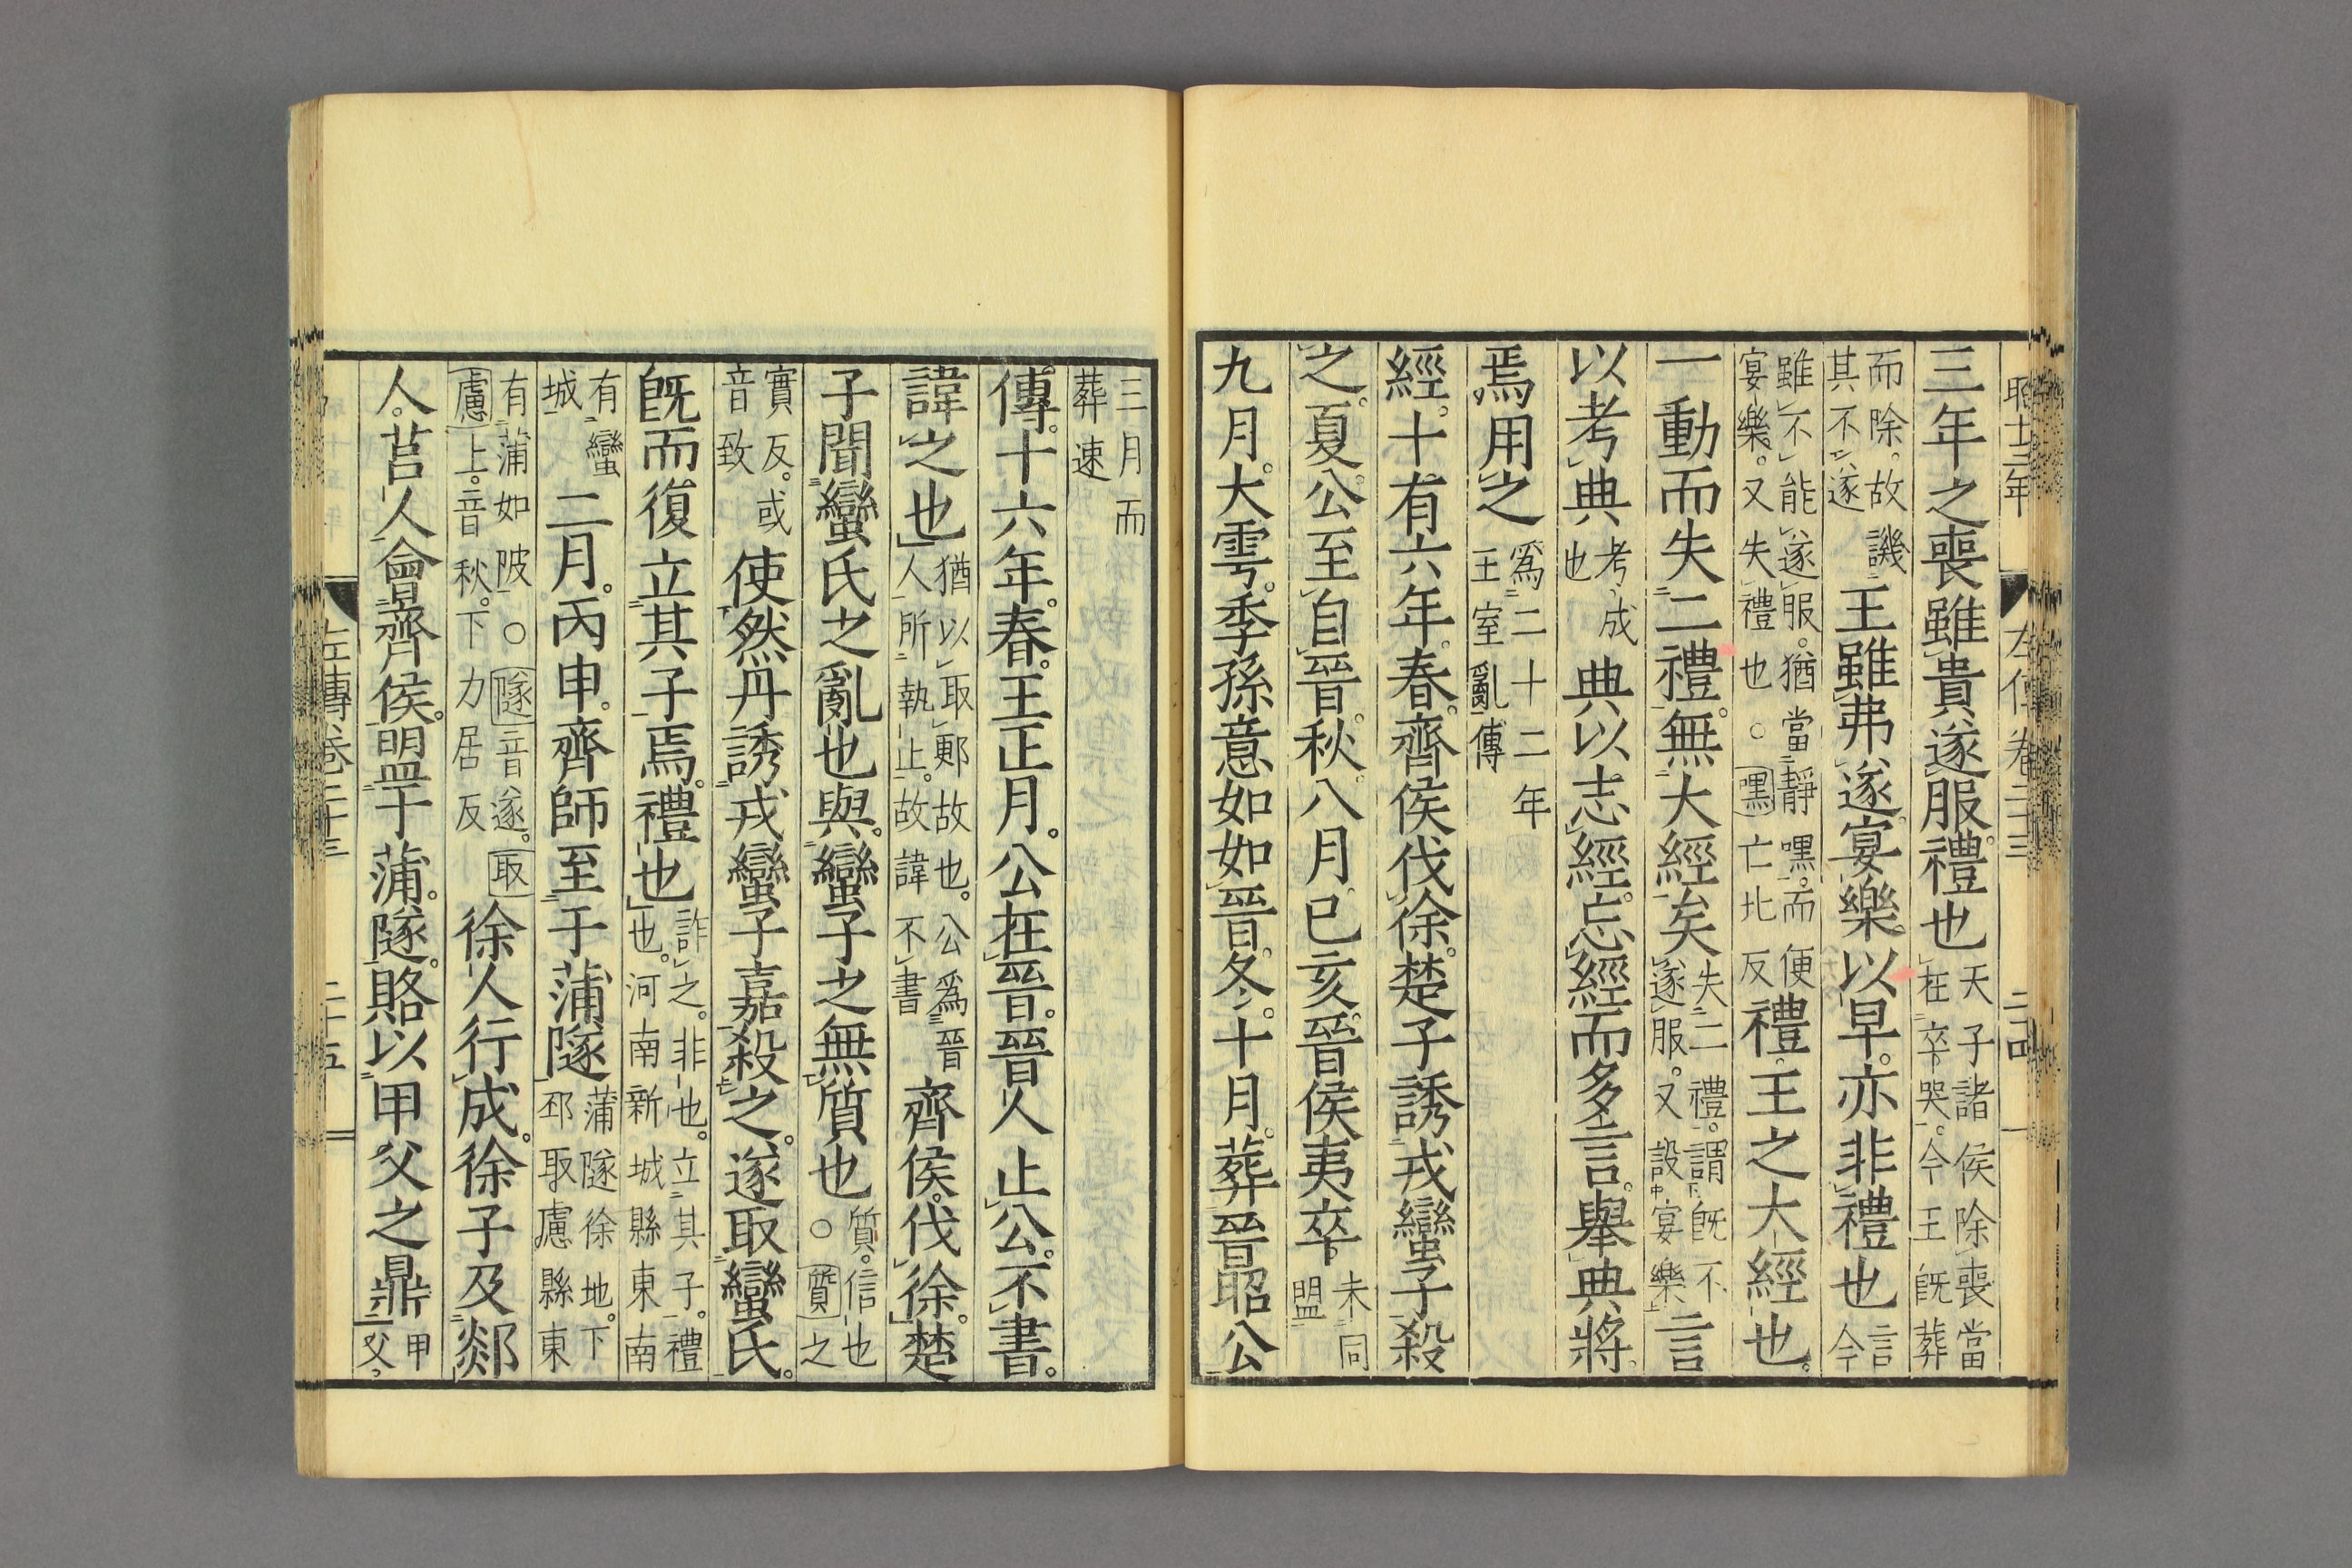 三年之喪雖貴遂服禮也天子諸侯除喪當在卒哭今王既葬
而除故譏其不遂王雖弗遂宴樂以早亦非禮也言今
雖不能遂服猶當靜嘿而便宴樂又失禮也○嘿亡北反禮王之大經也
一動而失二禮無大經矣失二禮謂既不遂服又設宴樂言
以考典考成也典以志經忘經而多言舉典將
焉用之爲二十二年王室亂傳
經十有六年春齊侯伐徐楚子誘戎蠻子殺
之夏公至自晉秋八月已亥晉侯夷卒未同盟
九月大雩季孫意如如晉冬十月葬晉昭公
三月而葬速
傳十六年春王正月公在晉晉人止公不書
諱之也猶以取鄆故也公爲晉人所執止故諱不書齊侯伐徐楚
子聞蠻氏之亂也與蠻子之無質也質信也○質之
實反或音致使然丹誘戎蠻子嘉殺之遂取蠻氏
既而復立其子焉禮也詐之非也立其子禮也河南新城縣東南
有蠻城二月丙申齊師至于蒲隧蒲隧徐地下邳取慮縣東
有蒲如陂○隧音遂取慮上音秋下力居反徐人行成徐子及郯
人莒人會齊侯盟于蒲隧賂以甲父之鼎甲父
左傳卷二十三 二十五